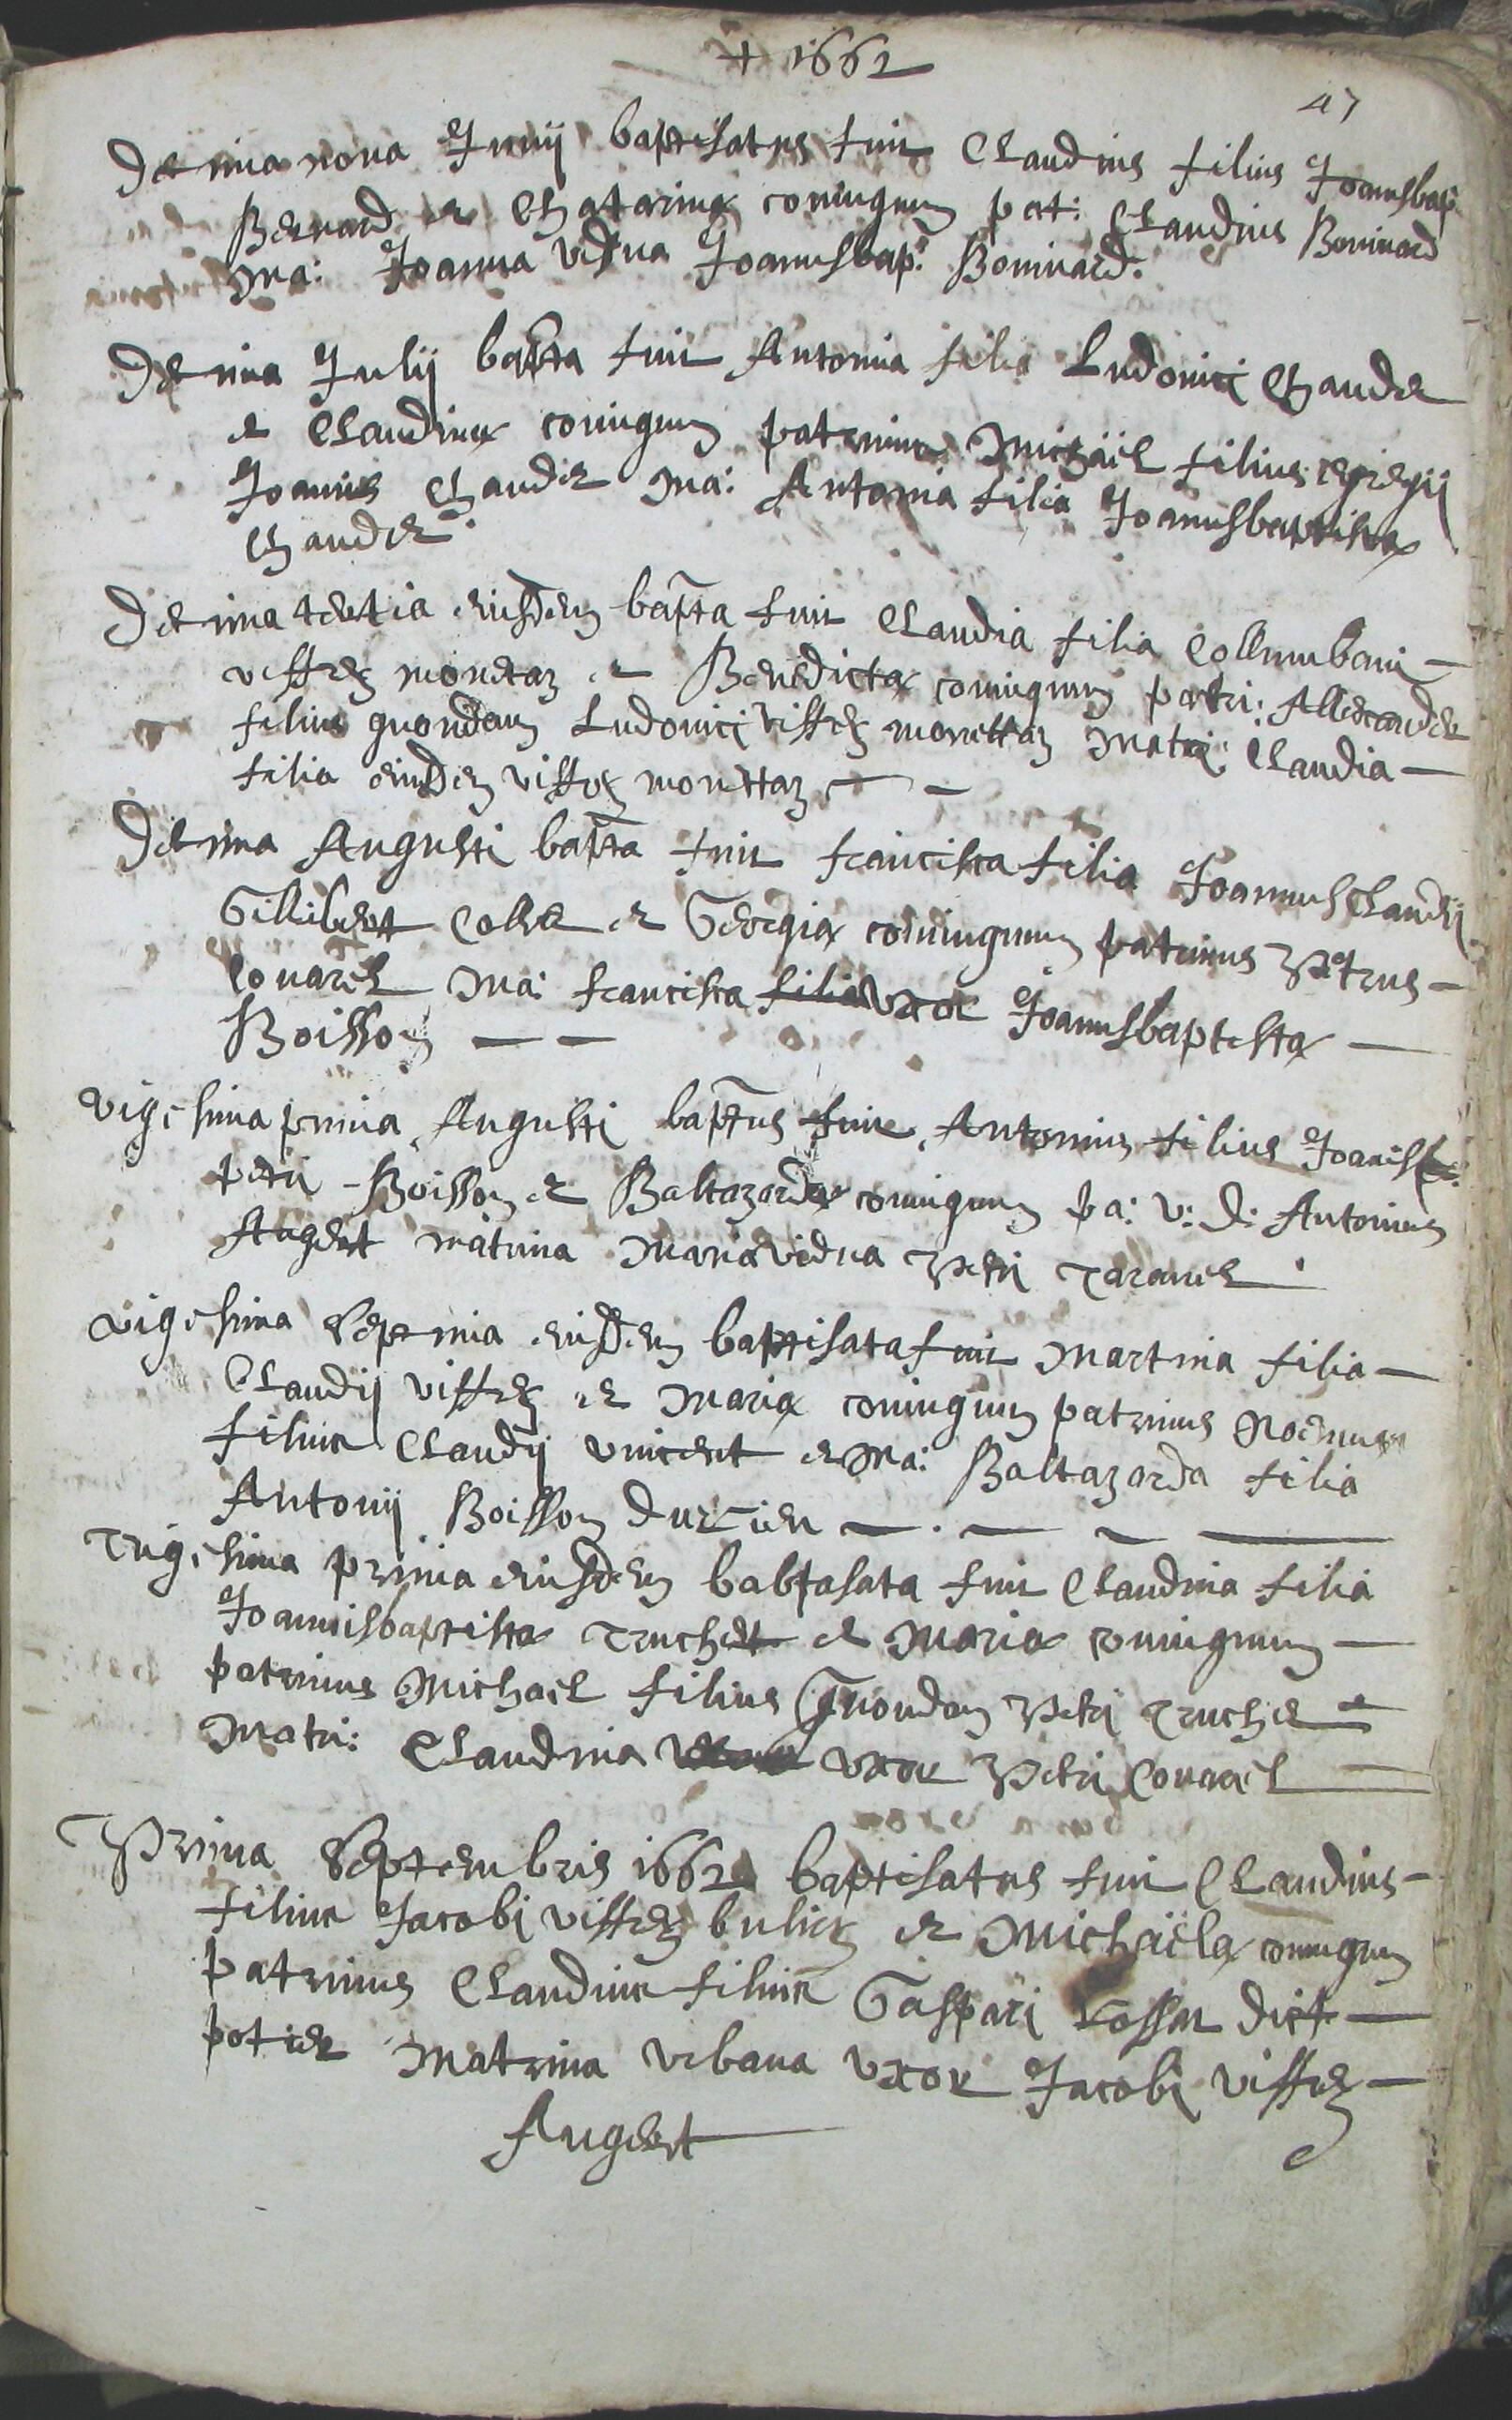 + 1662
47
Decima nona Junij baptisatus fuit Claudius filius Joannisbap:
Bernard et Chatarinæ coniugum pat: Claudius Bominard
ma: Joanna vidua Joannisbap: Bominard.
Decima Julij bapta fuit Antonia filia Ludovici Chaudet
et Claudinæ coniugum patrinus Michaël filius egregij
Joannis Chaudet Ma: Antonia filia Joannisbaptistæ
Chaudet.
Decima tertia eiusdem bapta fuit Claudia filia Collumbani
viffrey monetaz et Benedictæ coniugum patri: Allexander
filius quondam Ludovici viffrey monettaz Matri: Claudia
filia eiusdem viffrey monettaz
Decima Augusti bapta fuit francisca filia Joannis Claudij
Gillibert Collet et Georgiæ coniugum patrinus Petrus
Couarel Ma: francisca filia uxor Joannisbaptistæ
Boisson
vigesima prima Augusti baptus fuit Antonius filius Joanis
petri Boisson et Baltazardæ coniugum pa: v: d: Antonius
Augert matrina Maria vidua Petri Taravel
vigesima septima eiusdem baptisata fuit Martina filia
Claudij viffrey et Mariæ coniugum patrinus
filius Claudij vincent et Ma: Baltazarda filia
Antonij Boisson
Trigesima prima eiusdem babtasata fuit Claudina filia
Joannisbaptistæ Truchet et Mariæ coniugum
patrinus Michael filius Quondam Petri Truchet
Matri: Claudina uxor Petri Couarel
Prima Septembris 1662 baptisatus fuit Claudius
filius Jacobi viffrey buliez et Michaëlæ coniugum
patrinus Claudius filius Gaspari Rossat dict
potier Matrina urbana uxor Jacobi viffrey
Augert